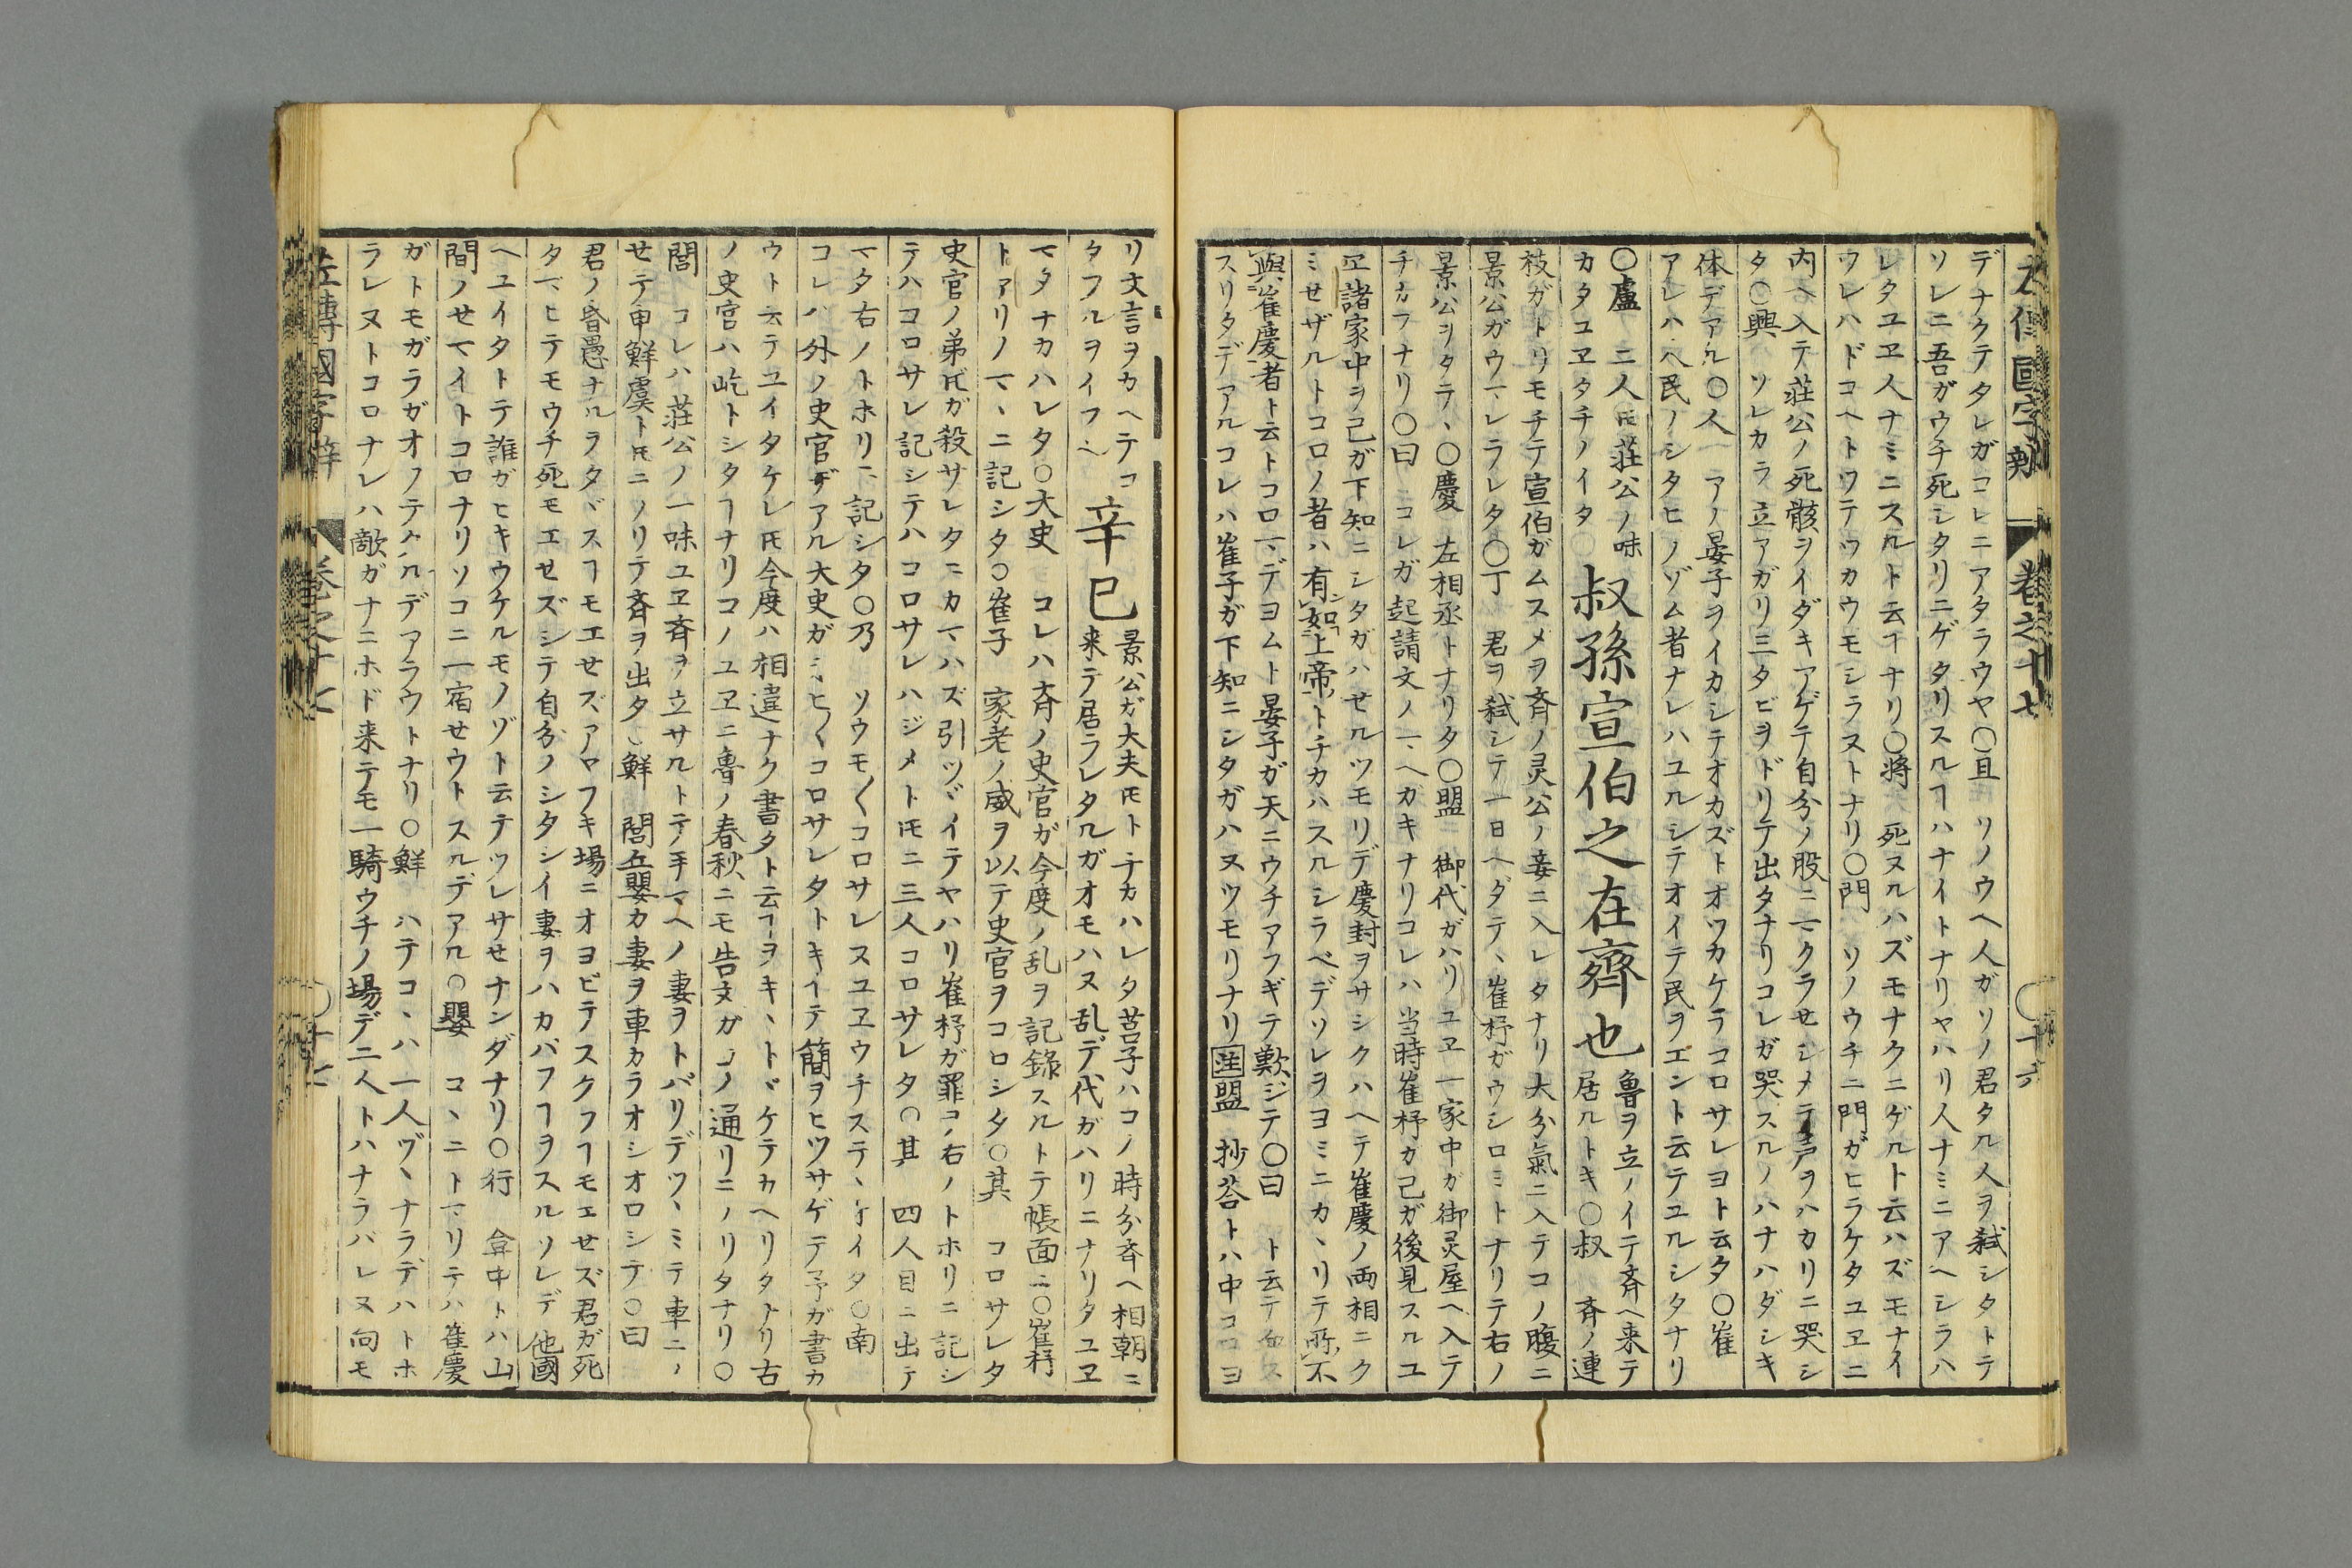 左傳國字辨　卷之十七　〇十六
デナクテタレガコレニアタラウヤ〇且　ソノウヘ人ガソノ君タル人ヲ弑シタトテ
ソレニ吾ガウチ死シタリニゲタリスルヿハナイトナリヤハリ人ナミニアヘシラハ
レタユヱ人ナミニスルト云ヿナリ〇将　死ヌルハズモナクニゲルト云ハズモナイ
ウレハドコヘトウテウカウモシラヌトナリ〇門　ソノウチニ門ガヒラケタユヱニ
内ヘ入テ莊公ノ死骸ヲイダキアゲテ自分ノ股ニマクラセシメテ声ヲハカリニ哭シ
タ〇興　ソレカラ立アガリ三タビヲドリテ出タナリコレガ哭スルノハナハダシキ
体デアル〇人　アノ晏子ヲイカシテオカズトオツカケテコロサレヨト云タ〇崔
アレハヘ民ノシタヒノゾム者ナレハユルシテオイテ民ヲエント云テユルシタナリ
〇盧　二人𪜈莊公ノ味
カタユヱタチノイタ
叔孫宣伯之在齊也
魯ヲ立ノイテ斉ヘ来テ
居ルトキ〇叔　斉ノ連
枝ガトリモチテ宣伯ガムスメヲ斉ノ灵公ノ妾ニ入レタナリ大分氣ニ入テコノ腹ニ
景公ガウマレラレタ〇丁　君ヲ弑シテ一日ヘダテヽ崔杼ガウシロミトナリテ右ノ
景公ヲタテヽ〇慶　左相丞トナリタ〇盟　御代ガハリユヱ一家中ガ御灵屋ヘ入テ
チカフナリ〇曰　コレガ起請文ノマヘガキナリコレハ当時崔杼カ己ガ後見スルユ
ヱ諸家中ヲ己ガ下知ニシタガハセルツモリデ慶封ヲサシクハヘテ崔慶ノ両相ニク
ミせザルトコロノ者ハ有如上帝トチカハスルシラベデソレヲヨミニカヽリテ所不
與崔慶者ト云トコロマデヨムト晏子ガ天ニウチアフギテ歎ジテ〇曰　ト云テ
スリタデアルコレハ崔子ガ下知ニシタガハヌツモリナリ注盟　抄荅トハ中コロヨ
リ文言ヲカヘテコ
タフルヲイフ
辛巳
景公ガ大夫𪜈トチカハレタ莒子ハコノ時分斉ヘ相朝ニ
来テ居ラレタルガオモハヌ乱デ代ガハリニナリタユヱ
マタチカハレタ〇大史　コレハ斉ノ史官ガ今度ノ乱ヲ記錄スルトテ帳面ニ〇崔杼
トアリノマヽニ記シタ〇崔子　家老ノ威ヲ以テ史官ヲコロシタ〇其　コロサレタ
史官ノ弟𪜈ガ殺サレタニカマハズ引ツヾイテヤハリ崔杼ガ罪コノ右ノトホリニ記シ
テハコロサレ記シテハコロサレハジメト𪜈ニ三人コロサレタ〇其　四人目ニ出テ
マタ右ノトホリニ記シタ〇乃　ソウモ〱コロサレヌユヱウチステヽオイタ〇南
コレハ外ノ史官デアル大史ガミヒ〱コロサレタトキイテ簡ヲヒツサゲテ予ガ書カ
ウト云テユイタケレ𪜈今度ハ相違ナク書タト云ヿヲキヽトヾケテカヘリタトリ右
ノ史官ハ屹トシタヿナリコノユヱニ魯ノ春秋ニモ告文ガコノ通リニノリタナリ〇
閭　コレハ莊公ノ一味ユヱ斉ヲ立サルトテノ手マヘノ妻ヲトバリデツヽミテ車ニノ
せテ申鮮虞ト𪜈ニノリテ斉ヲ出タ〇鮮　閭丘嬰カ妻ヲ車カラオシオロシテ〇曰
君ノ昏愚ナルヲタヾスヿモエせズアヤフキ場ニオヨビテスクフヿモエせズ君ガ死
タマヒテモウチ死モエせズシテ自分ノシタシイ妻ヲハカバフヿヲスルソレデ他國
ヘユイタトテ誰ガヒキウケルモノゾト云テツレサせナンダナリ〇行　弇中トハ山
間ノせマイトコロナリソコニ一宿せウトスルデアル〇嬰　コヽニトマリテハ崔慶
ガトモガラガオフテクルデアラウトナリ〇鮮　ハテコヽハ一人ヅヽナラデハトホ
ラレヌトコロナレハ敵ガナニホド来テモ一騎ウチノ場デ二人トハナラバレヌ向モ
左傳國字辨　卷之十七　〇十七